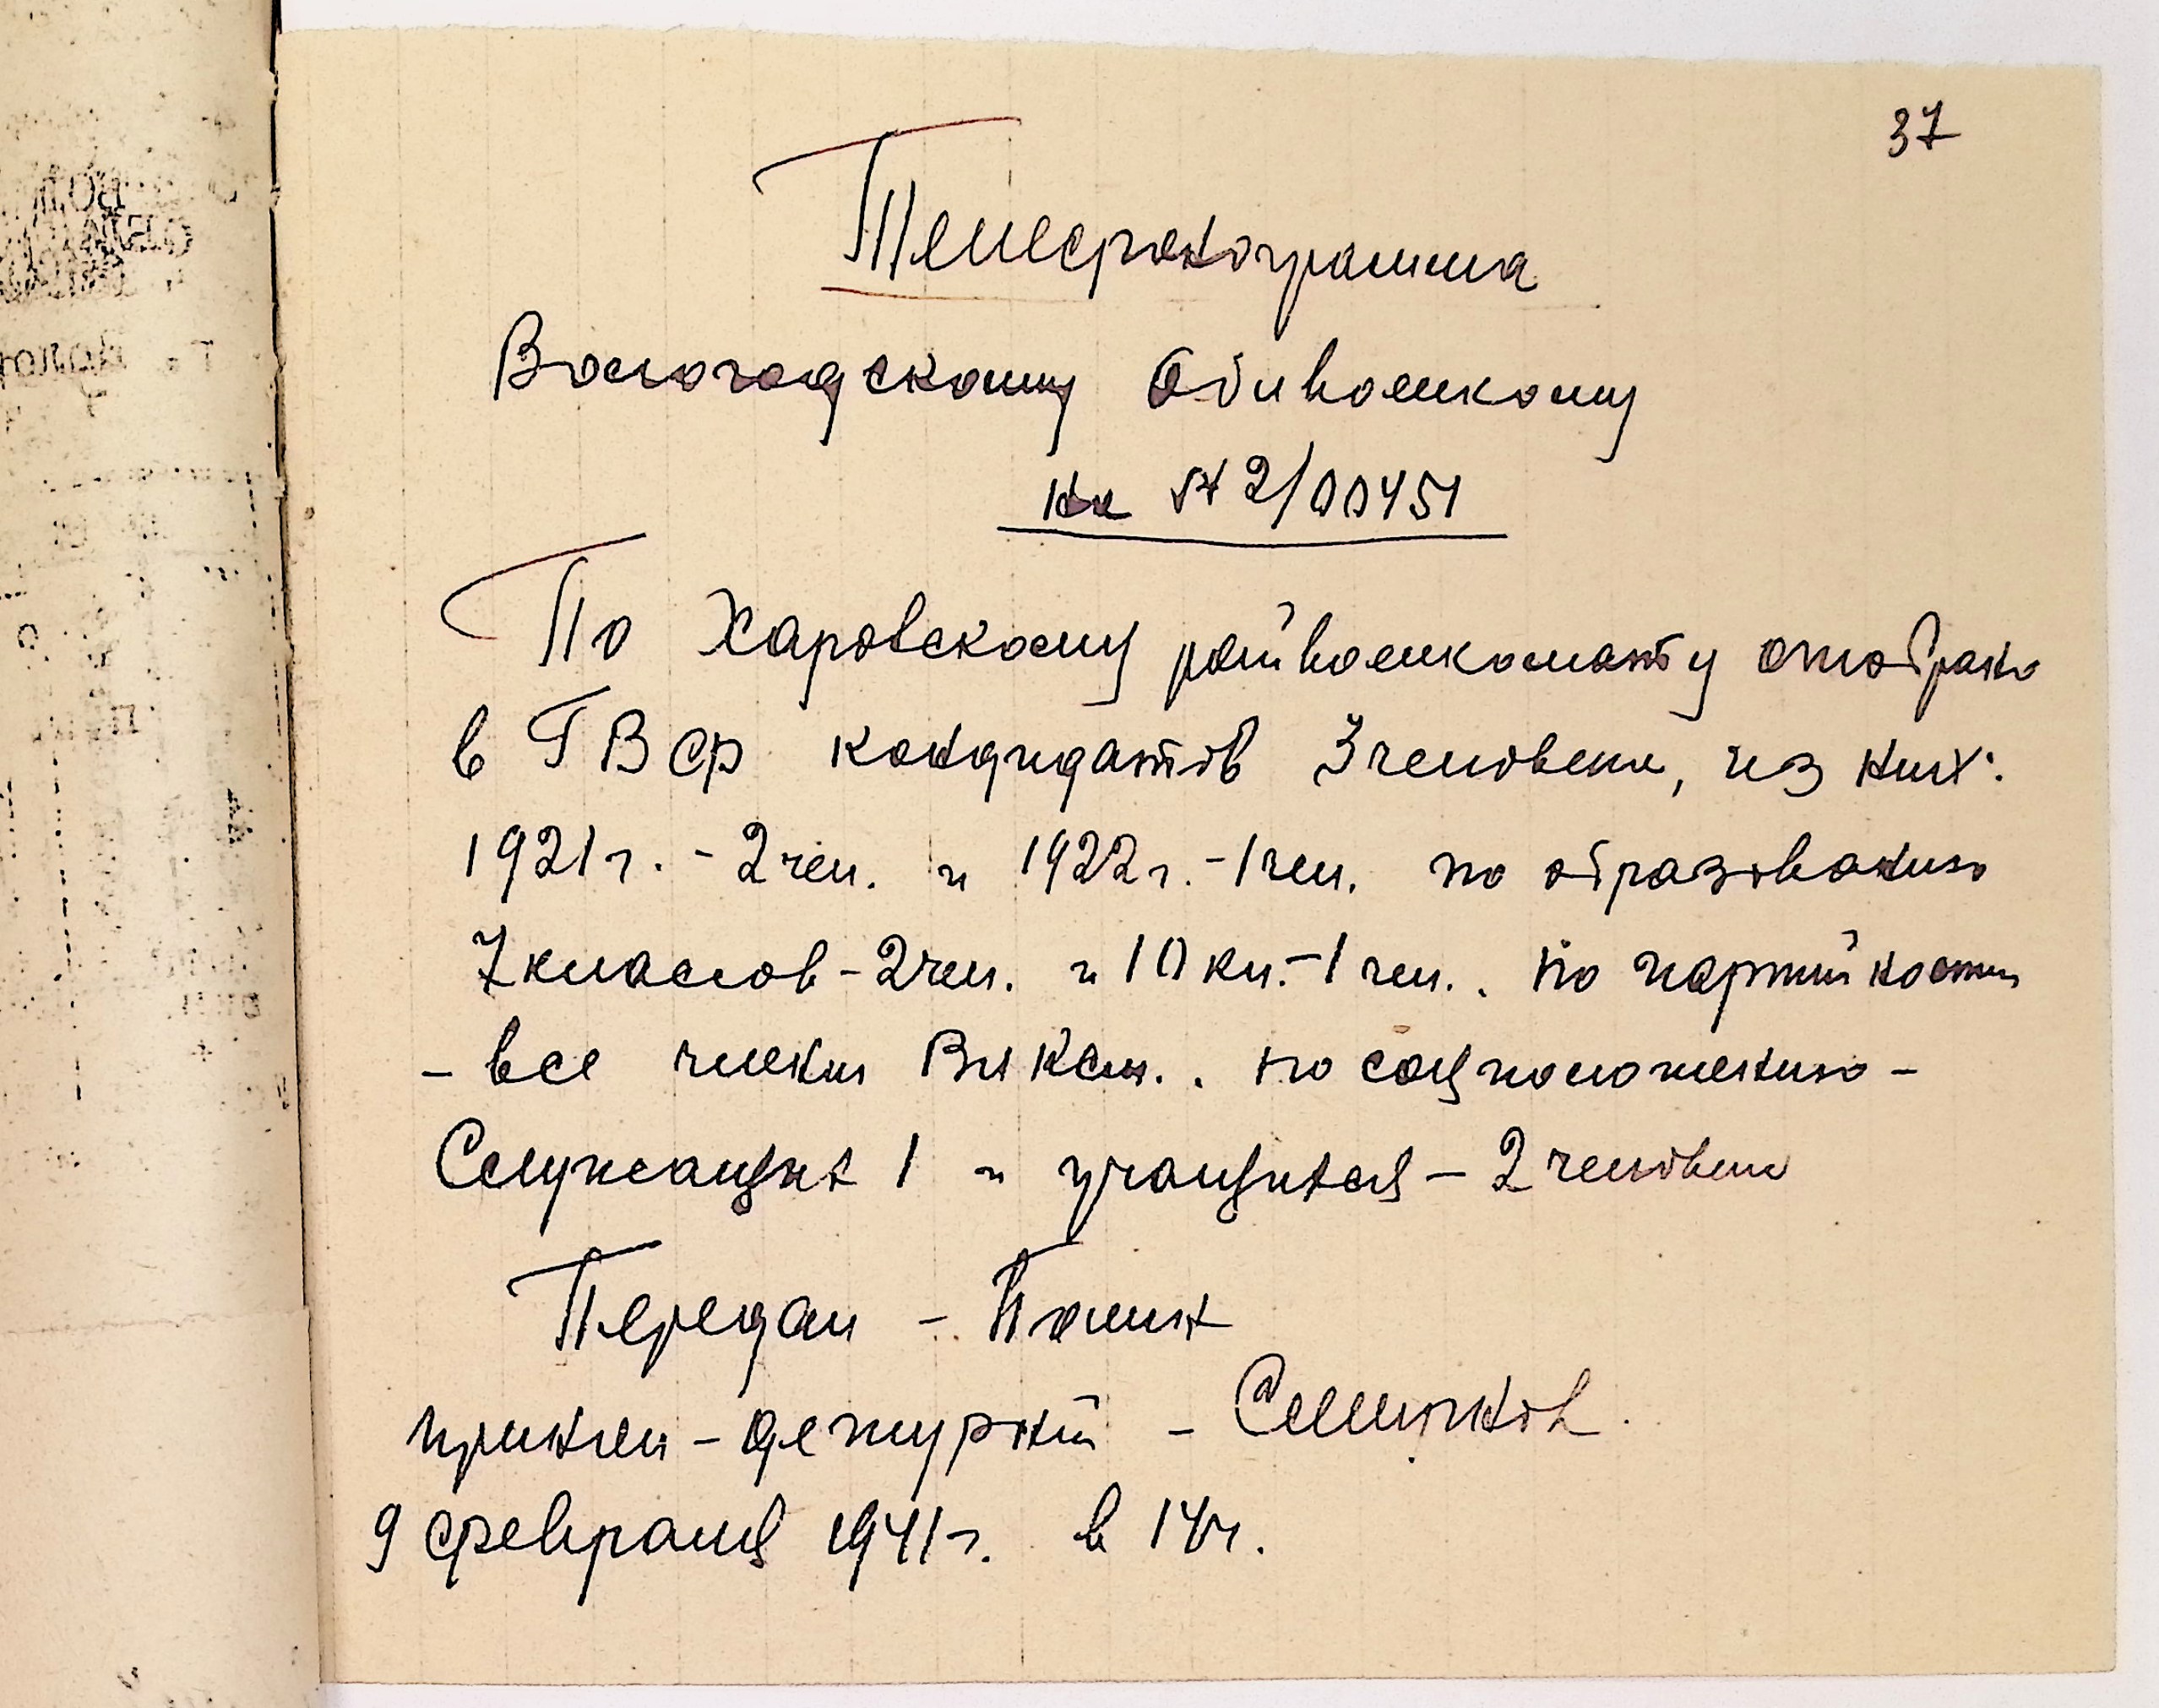 37
Телефонограмма
Вологодскому Облвоенкому
на № 2/00451
По Харовскому райвоенкомату отобрано
в ГВФ кандидатов 3 человека, из них:
1921 г. - 2 чел. и 1922 г. - 1 чел. по образованию
7 классов - 2 чел. и 10 кл. - 1 чел.. по партийности
- все члены ВЛКСМ.. по соцположению -
Служащих 1 и учащихся - 2 человека
Передал -
принял - дежурный - Семенков.
9 февраля 1941 г. в 14 ч.